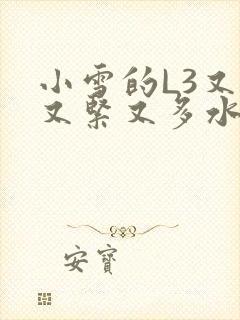 小雪的L3又
又紧又多水
安寶